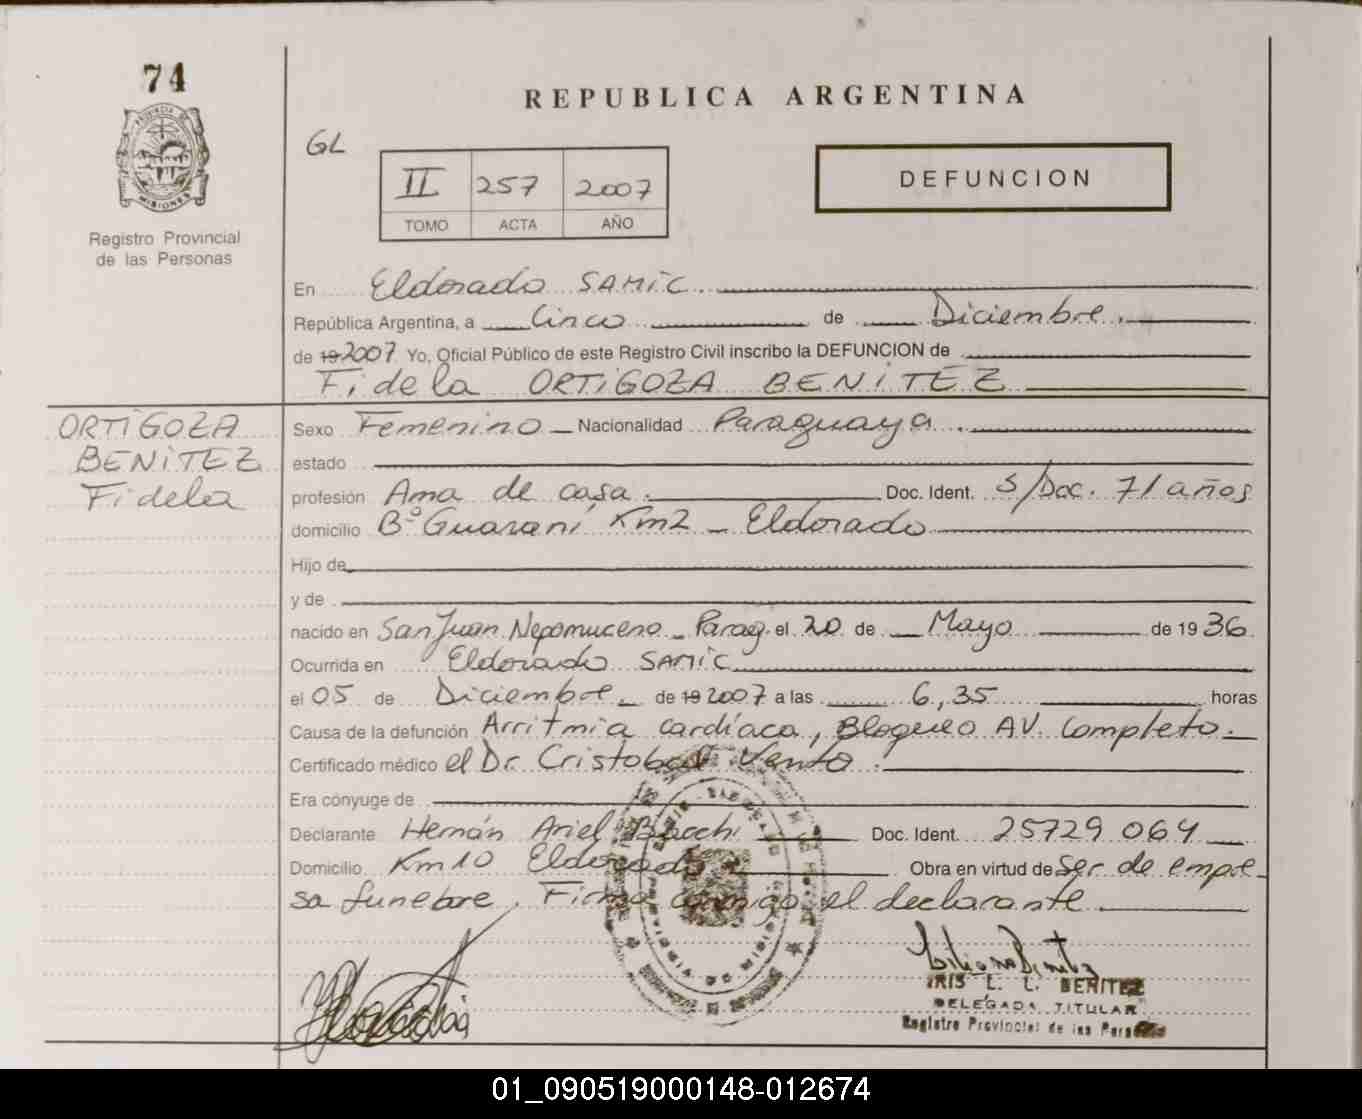 74
PROVINCIA DE
MISIONES
Registro Provincial
de las Personas
REPUBLICA ARGENTINA
GL
II 257 2007
TOMO ACTA AÑO
DEFUNCION
En Eldorado SAMIC.
República Argentina, a Cinco de Diciembre.
de 19 2007 Yo, Oficial Público de este Registro Civil inscribo la DEFUNCION de
Fidela ORTIGOZA BENITEZ
ORTIGOZA
BENITEZ
Fidela
Sexo Femenino Nacionalidad Paraguaya.
estado
profesión Ama de casa. Doc. Ident. S/Doc. 71 años
domicilio Bº Guaraní, Km2 - Eldorado
Hijo de
y de
nacido en San Juan Nepomuceno - Parag. el 20 de Mayo de 1936
Ocurrida en Eldorado SAMIC
el 05 de Diciembre de 19 2007 a las 6,35 horas
Causa de la defunción Arritmia cardíaca, Bloqueo A.V. Completo.
Certificado médico el Dr. Cristobal Vento.
Era cónyuge de
Declarante Hernán Ariel Doc. Ident. 25729.064
Domicilio Km 10 Eldorado Obra en virtud de Ser de empre
sa funebre. Firma conmigo el declarante
IRIS L. L. BENITEZ
DELEGADA TITULAR
Registro Provincial de las Personas
01_090519000148-012674